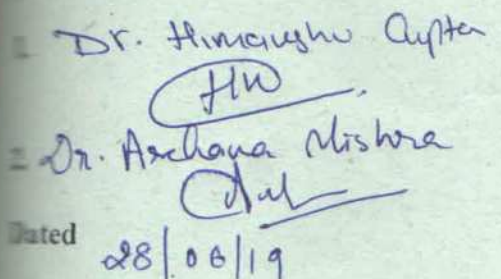 1. Dr. Himanshu Gupta
2. Dr. Archana Mishra
Dated
28/06/19